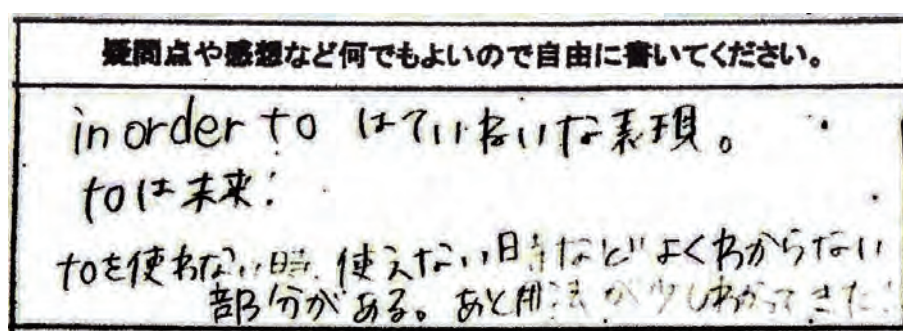 疑問点や感想など何でもよいので自由に書いてください。
in order to はていねいな表現。
toは未来!
toを使わない時、使えない時などよくわからない
部分がある。あと用法が少しわかってきた!